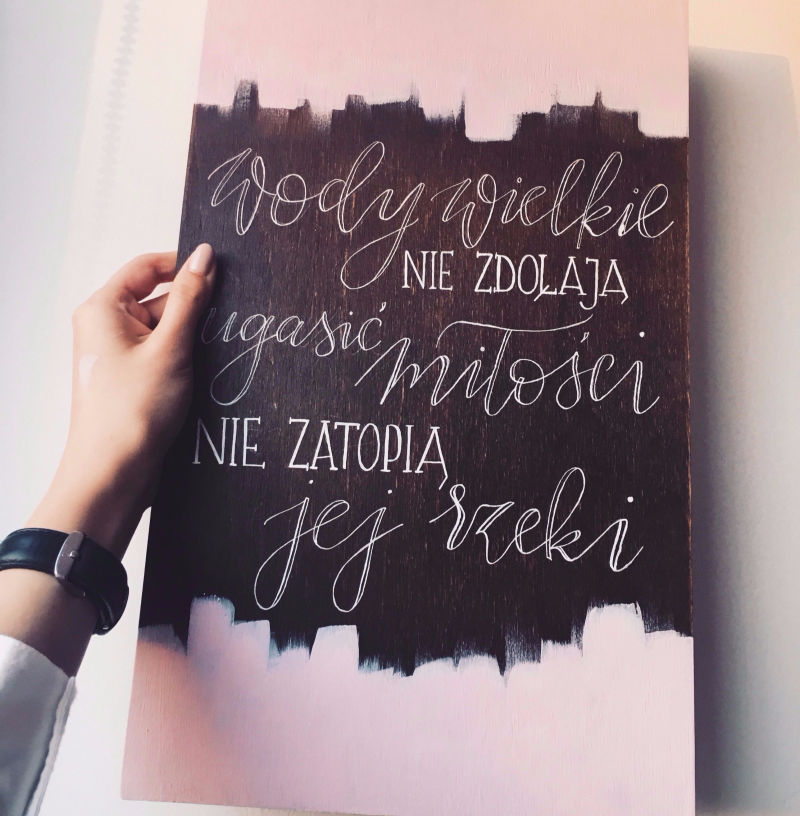 wody wielkie
NIE ZDOLAJĄ
ugasić miłości
NIE ZATOPIĄ
jej rzeki